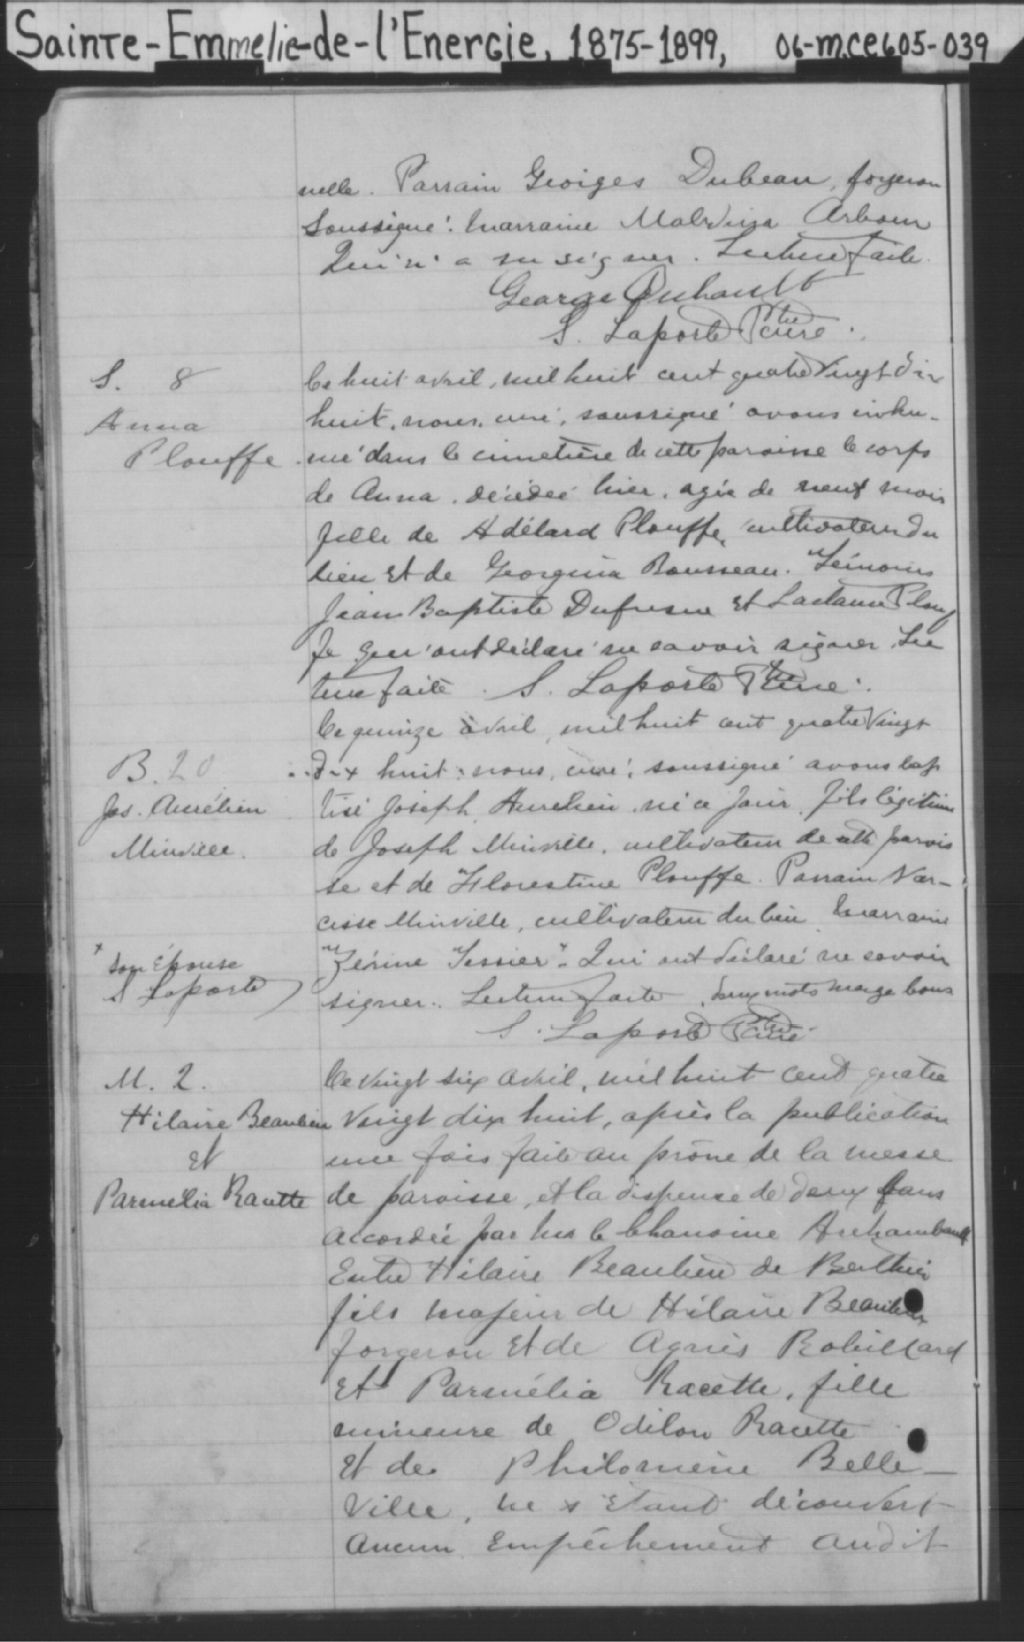 Sainte-Emmelie-de-l'Energie, 1875-1899, 06-m.ce605-039
nelle. Parrain Georges Dubeau, forgeron
soussigné: marraine Malvina
Qui n'a su signer. Lecture faite.
George
S. Laporte Ptre curé.
S. 8
Anna
Plouffe
Ce huit avril, mil huit cent quatre vingt dix
huit, nous, curé, soussigné avons inhu-
mé dans le cimetière de cette paroisse le corps
de Anna, décédée hier, agée de neuf mois
fille de Adélard Plouffe, cultivateur du
lieu et de Georgina Rousseau. Témoins
Jean Baptiste Dufresne et Plouf
fe qui ont déclaré ne savoir signer. Lec
ture faite. S. Laporte Ptre curé.
B. 20
Jos. Aurélien
Minville.
Ce quinze avril, mil huit cent quatre vingt
dix huit, nous, curé, soussigné avons bap
tisé Joseph Aurelien né ce jour, fils légitime
de Joseph Minville, cultivateur de cette parois
se et de Florestine Plouffe. Parrain Nar-
cisse Minville, cultivateur du lieu, marraine
Zérine Tessier + Qui ont déclaré ne savoir
signer. Lecture faite, deux mots marge bons
S. Laporte Ptre curé
+ son épouse
S Laporte
M. 2.
Hilaire Beaulieu
et
Parmélia Racette
Ce vingt six avril, mil huit cent quatre
vingt dix huit, après la publication
une fois faite au prône de la messe
de paroisse, et la dispense de deux bans
accordée par Mr le Chanoine Archambault
Entre Hilaire Beaulieu de Berthier
fils majeur de Hilaire Beaulieu
forgeron et de Agnès Robillard
et Parmélia Racette, fille
mineure de Odilon Racette
et de Philomène Belle-
ville, ne s'étant découvert
aucun Empêchement audit